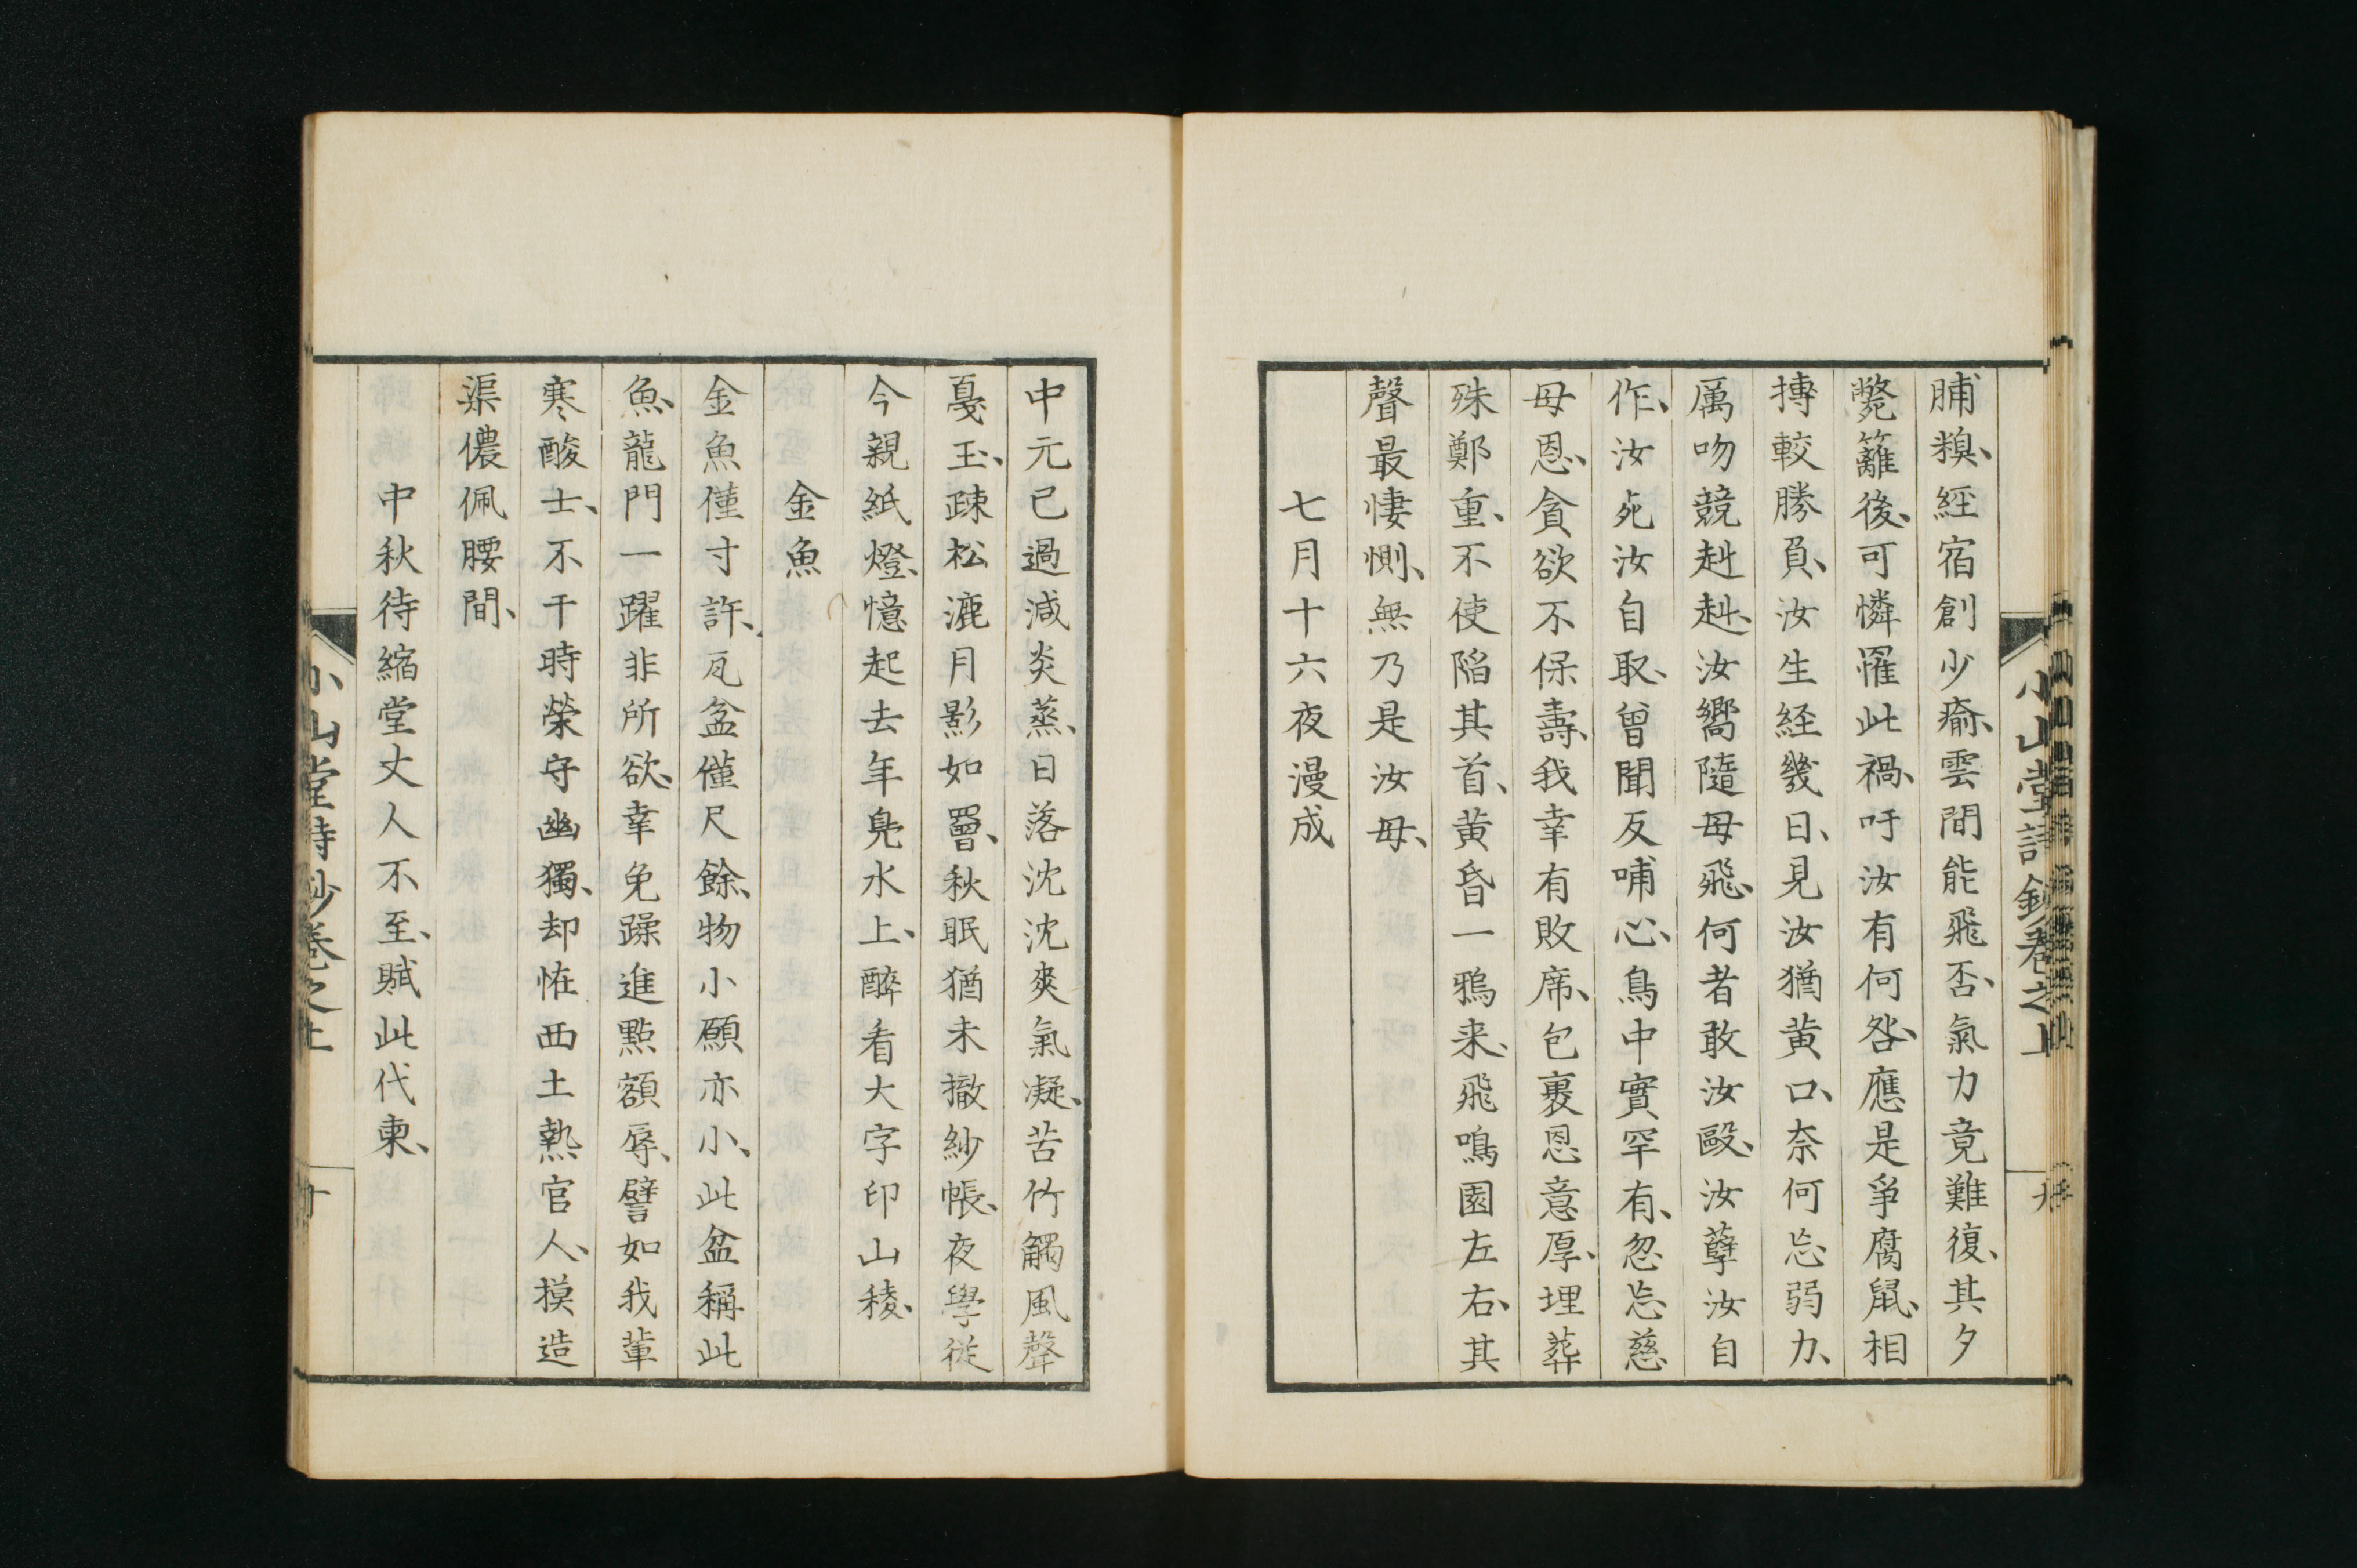 小山堂詩鈔卷之上
九
脯糗、經宿創少瘉、雲間能飛否、氣力竟難復、其夕
斃籬後、可憐罹此禍、吁汝有何咎、應是爭腐鼠、相
摶較勝負、汝生経幾日、見汝猶黄口、奈何忘弱力、
厲吻競赳赳、汝嚮隨母飛、何者敢汝毆、汝孽汝自
作、汝死汝自取、曾聞反哺心、鳥中實罕有、忽忘慈
母恩、貪欲不保壽、我幸有敗席、包裹恩意厚、埋葬
殊鄭重、不使陷其首、黄昏一鴉来、飛鳴園左右、其
聲最悽惻、無乃是汝母、
七月十六夜漫成
中元已過減炎蒸、日落沈沈爽氣凝、苦竹觸風聲
戛玉、疎松漉月影如罾、秋眠猶未撤紗帳、夜學従
今親紙燈、憶起去年鳧水上、醉看大字印山稜、
金魚
金魚僅寸許、瓦盆僅尺餘、物小願亦小、此盆稱此
魚、龍門一躍非所欲、幸免躁進點額辱、譬如我輩
寒酸士、不干時榮守幽獨、却恠西土熱官人、摸造
渠儂佩腰間、
中秋待縮堂丈人不至、賦此代柬、
小山堂詩鈔卷之上
十